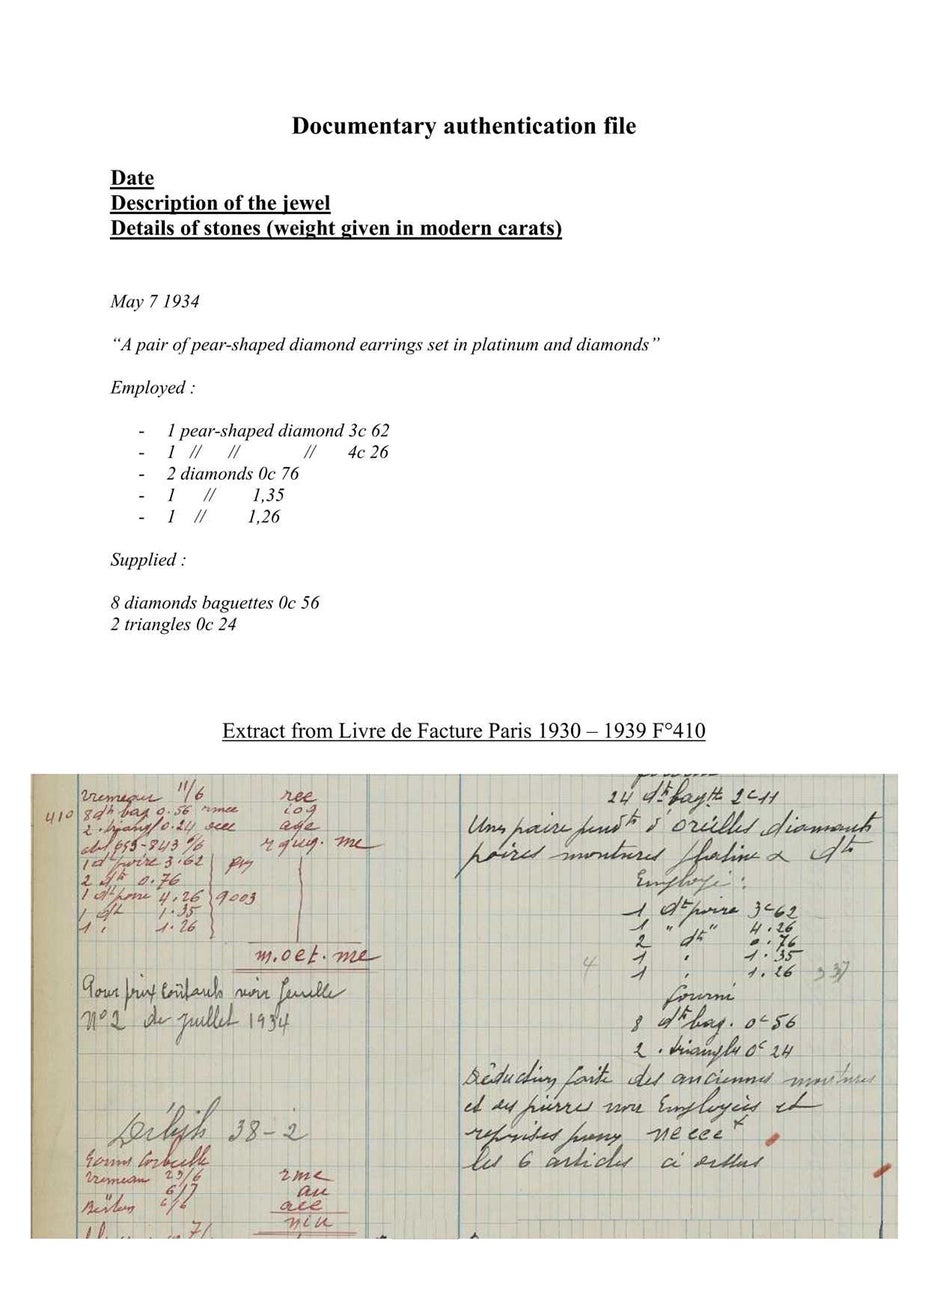 Documentary authentication file
Date
Description of the jewel
Details of stones (weight given in modern carats)
May 7 1934
“A pair of pear-shaped diamond earrings set in platinum and diamonds”
Employed :
- 1 pear-shaped diamond 3c 62
- 1 // // // 4c 26
- 2 diamonds 0c 76
- 1 // 1,35
- 1 // 1,26
Supplied :
8 diamonds baguettes 0c 56
2 triangles 0c 24
Extract from Livre de Facture Paris 1930 – 1939 F°410
11/6
410 8 dts bag 0.56
2 . triangl 0.24
1 dt poire 3.62
2 dts 0.76
1 dt poire 4.26 9003
1 dt 1.35
1 " 1.26
m.oet.me
Pour prix coûtants voir feuille
N°2 de juillet 1934
38-2
23/6
6/7
6/6
24 dts bagtt 2c11
Une paire pendts d'oreilles diamants
poires montures platine & dts
Employé :
1 dt poire 3c62
1 " " 4.26
2 dts 0.76
4 1 " 1.35
1 " 1.26
fourni
8 dts bag. 0c56
2 . triangles 0c24
Déduction faite des anciennes montures
et des pierres non Employées et
reprises pour
les 6 articles ci dessus